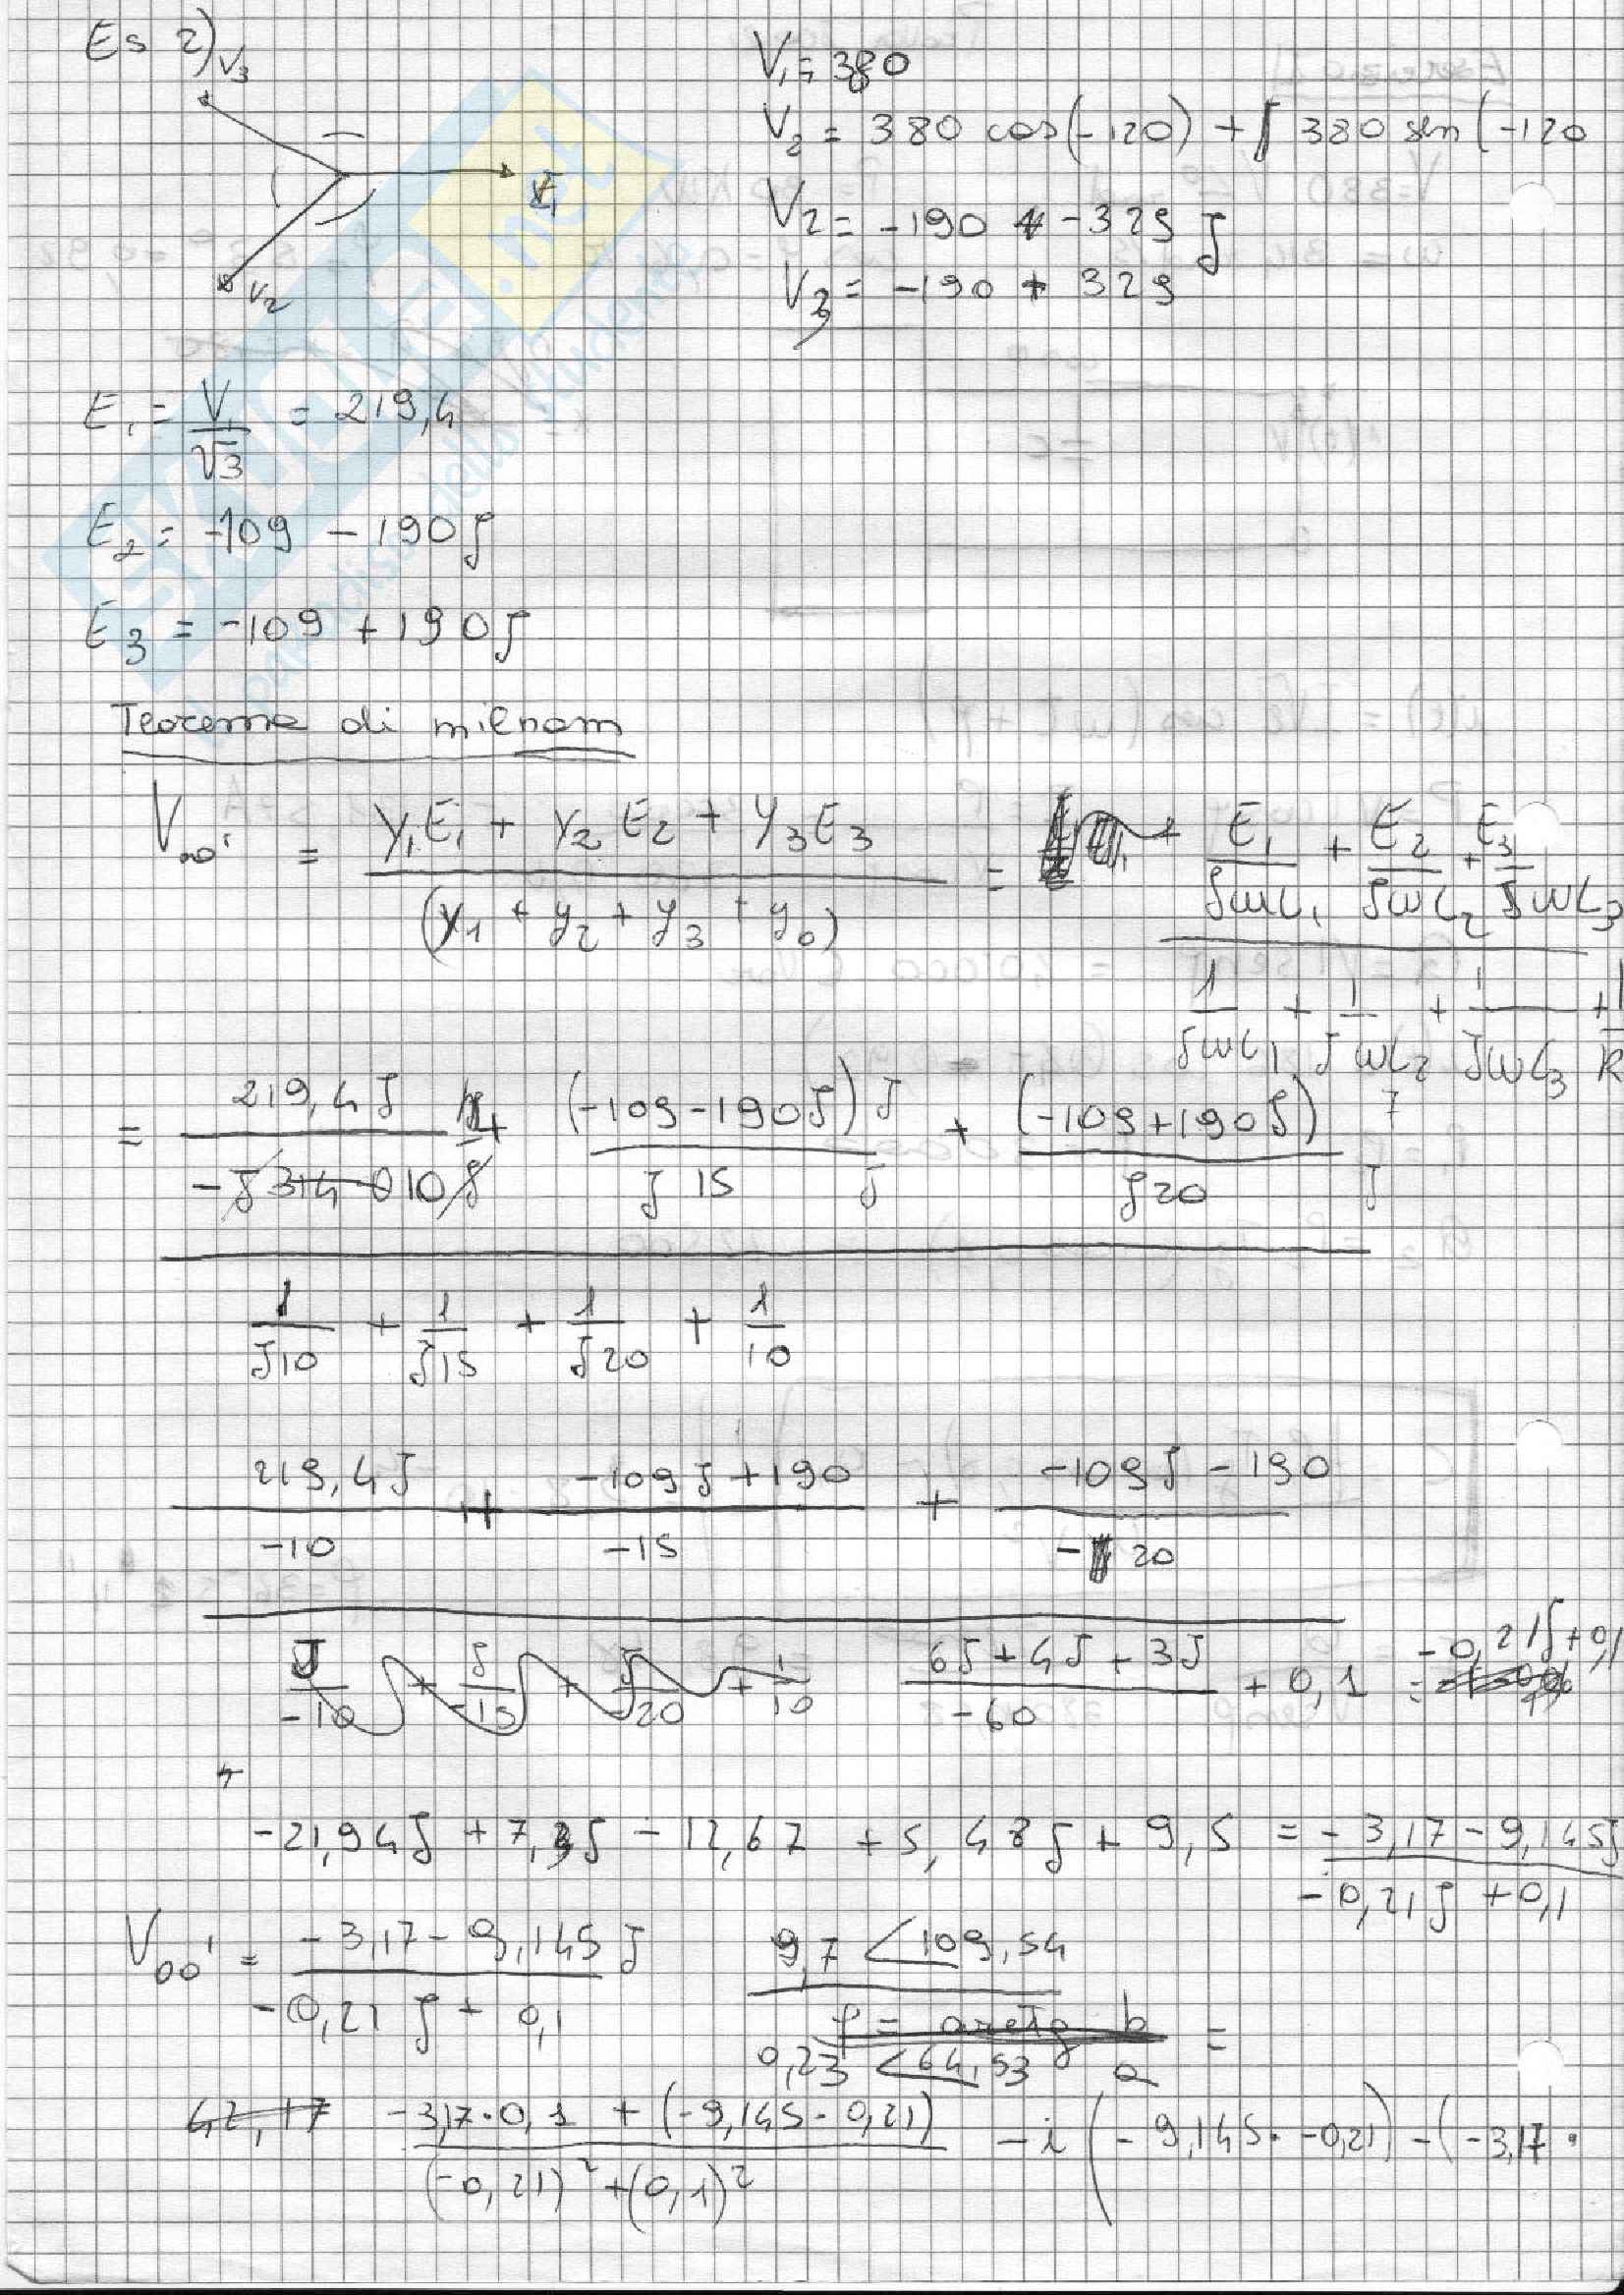 Es 2)
V3
V1
V2
V1 = 380
V2 = 380 cos(-120) + J 380 sen(-120
V2 = -190 -329 J
V3 = -190 + 329
E1 = V1/√3 = 219,4
E2 = -109 - 190J
E3 = -109 + 190J
Teorema di milnam
V00' = (Y1E1 + Y2E2 + Y3E3)/(Y1 + Y2 + Y3 + Y0) = (E1/JωL1 + E2/JωL2 + E3/JωL3)/(1/JωL1 + 1/JωL2 + 1/JωL3 + 1/R
= 219,4J/-10 + (-109-190J)J/J15 J + (-109+190J) J/J20 J
1/J10 + 1/J15 + 1/J20 + 1/10
219,4J/-10 + -109J+190/-15 + -109J-190/-20
J/-10 + J/-15 + J/-20 + 1/10 6J+4J+3J/-60 + 0,1 = -0,21J+0,1
-21,94J + 7,3J - 12,67 + 5,48J + 9,5 = -3,17 - 9,145J/-0,21J + 0,1
V00' = -3,17 - 9,145 J/-0,21 J + 0,1 9,7 ∠109,54
φ = arctg b/a =
0,23 ∠64,53
42,17 -3,17·0,1 + (-9,145·0,21)/(-0,21)² + (0,1)² - i (-9,145·-0,21) - (-3,17·
SKUOLA.net